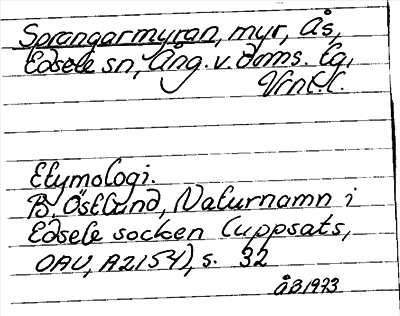 Sprängarmyran, myr, Ås,
Edsele sn, Ång. v. doms. lg,
Vrnl.l.
Etymologi.
B. Östlund, Naturnamn i
Edsele socken (uppsats,
OAU, A2154), s. 32
ÅB 1973